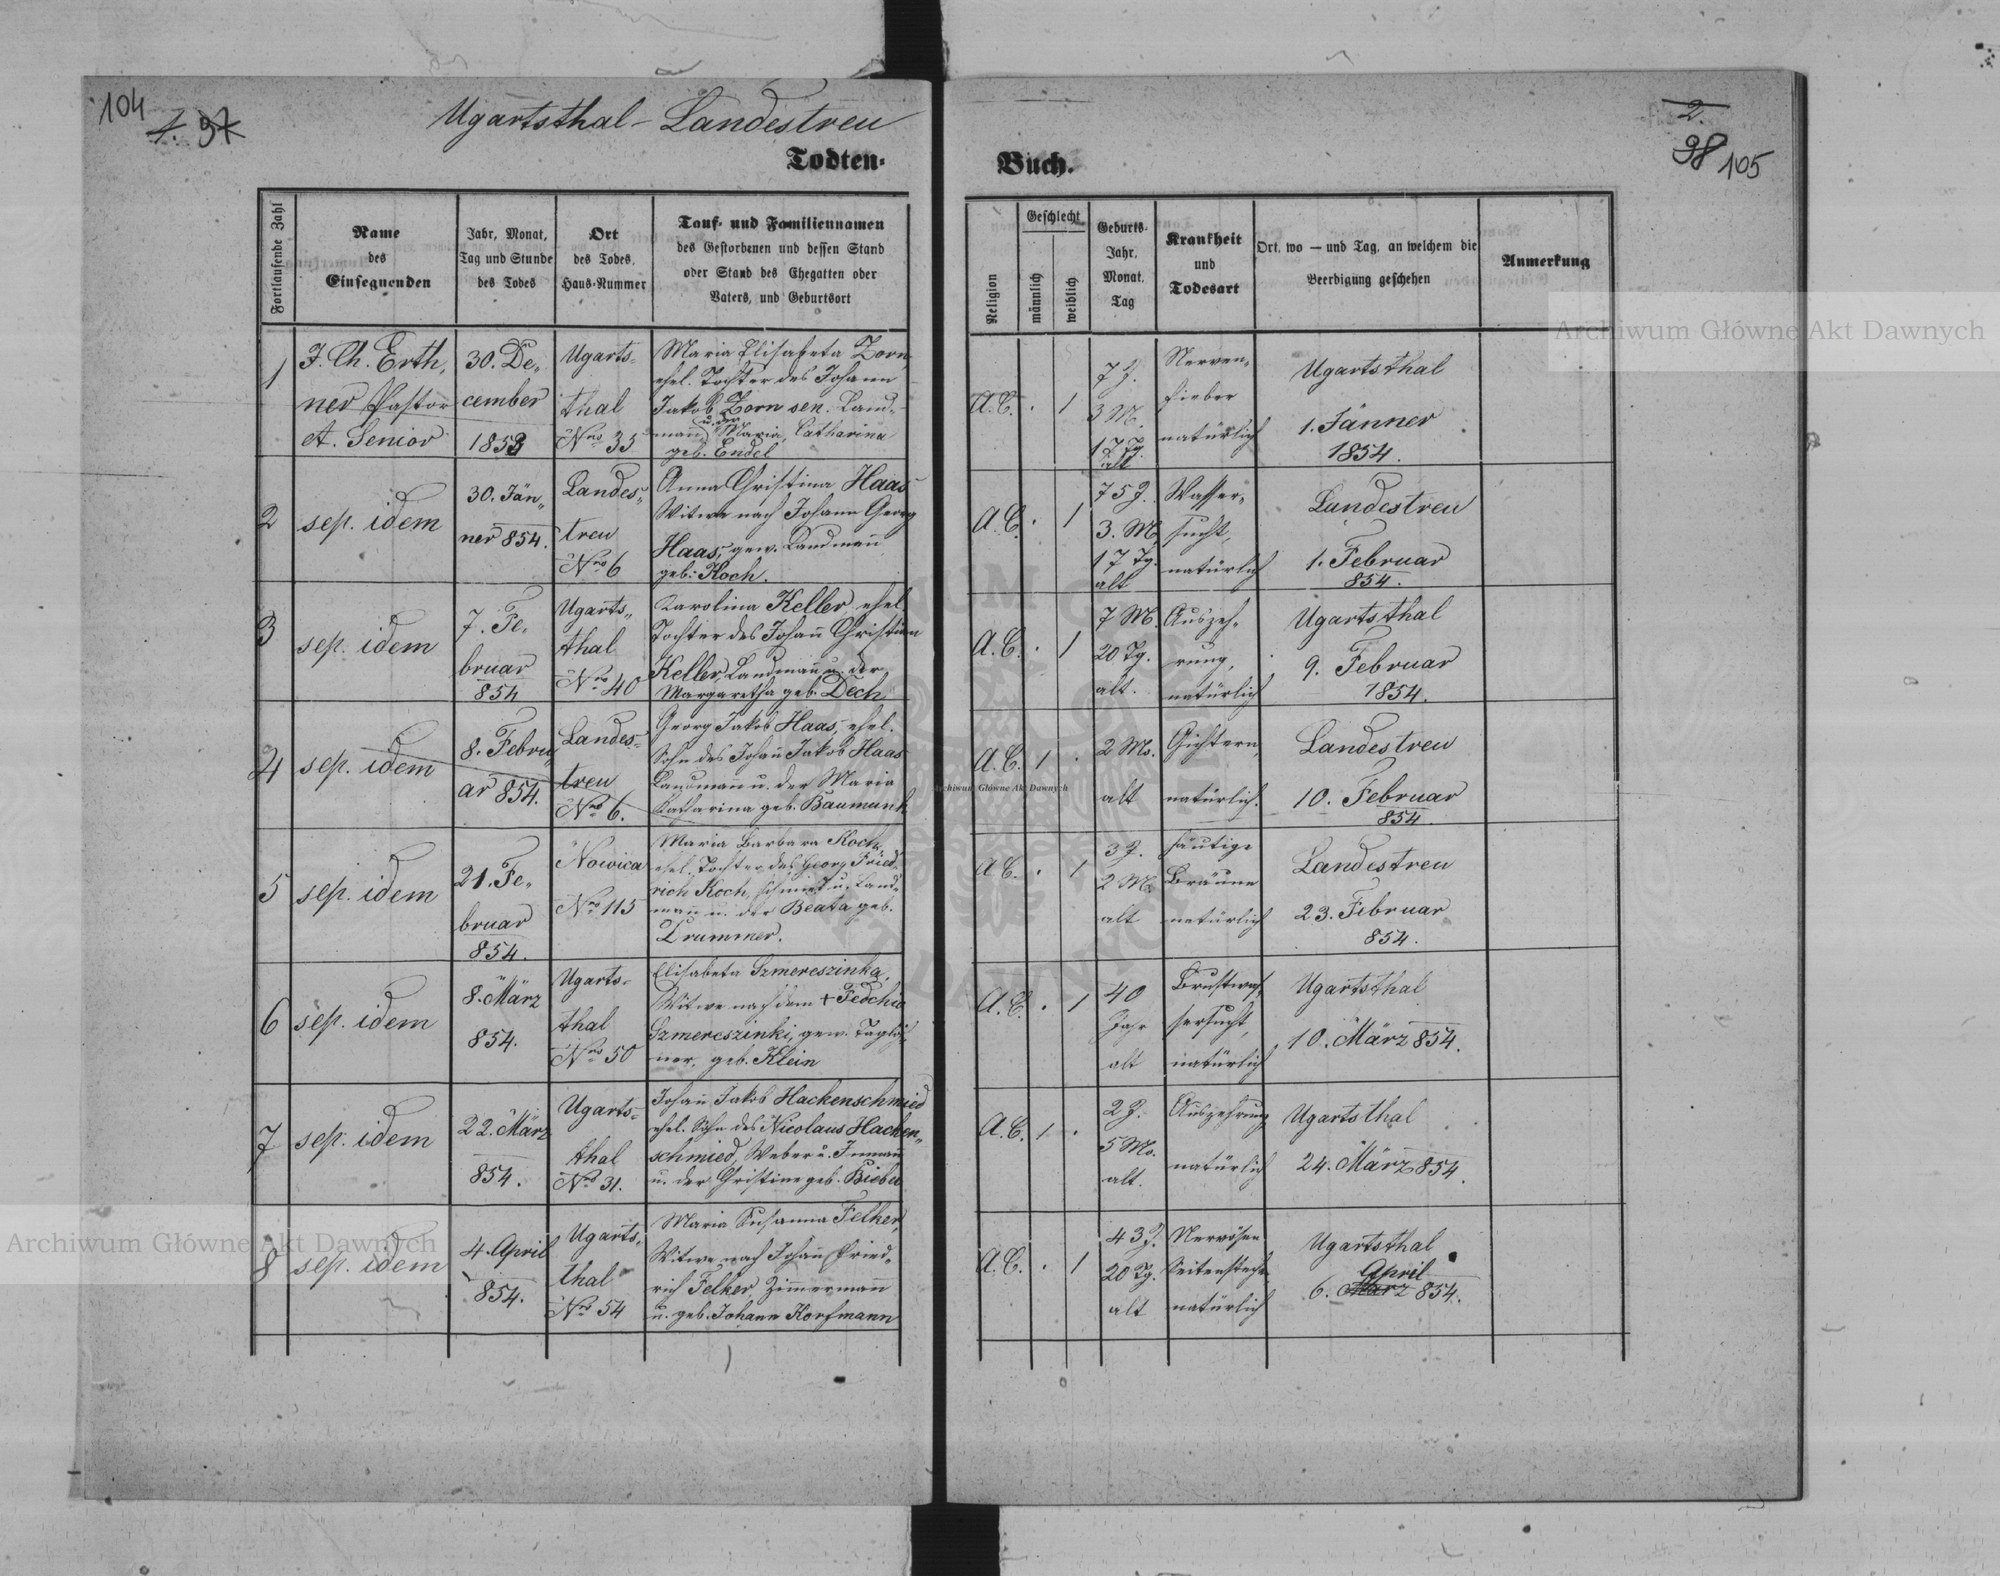 104
1. 97
Ugartsthal - Landestreu
Todten-
Fortlaufende Zahl
Name
des
Einsegnenden
Jahr, Monat,
Tag und Stunde
des Todes
Ort
des Todes,
Haus-Nummer
Tauf- und Familiennamen
des Gestorbenen und dessen Stand
oder Stand des Ehegatten oder
Vaters, und Geburtsort
1
J. Ch. Erth,
ner Pastor
et. Senior
30. De,
cember
1853
Ugarts-
thal
Nro 35
Maria Elisabeta Zorn,
ehel. Tochter des Johann
Jakob Zorn sen. Land-
mann u. der Maria, Catharina
geb. Endel
2
sep. idem
30. Jän„
ner 854.
Landes„
treu
Nro 6
Anna Christina Haas
Witwe nach Johann Georg
Haas, gew. Landmann
geb: Koch.
3
sep. idem
7. Fe,
bruar
854
Ugarts„
thal
Nro 40
Karolina Keller, ehel.
Tochter des Johann Christian
Keller, Landmann u. der
Margaretha geb. Dech
4
sep. idem
8. Febru„
ar 854.
Landes-
treu
Nro 6.
Georg Jakob Haas, ehel.
Sohn des Johann Jakob Haas
Landmann u. der Maria
Katharina geb. Baumunk
5
sep. idem
21. Fe,
bruar
854.
Nowica
Nro 115
Maria Barbara Koch,
ehel. Tochter des Georg Fried-
rich Koch, Schmied u. Land-
mann u. der Beata geb.
Drummer.
6
sep. idem
8. März
854.
Ugarts-
thal
Nro 50
Elisabeta Szmereszinka,
Witwe nach dem + Fedchio
Szmereszinki, gew. Taglöh-
ner, geb. Klein
7
sep. idem
22. März
854.
Ugarts-
thal
Nro 31.
Johann Jakob Hackenschmied
ehel. Sohn des Nicolaus Hacken„
schmied, Weber u. Inmann
u. der Christine geb. Biebel
8
sep. idem
4. April
854.
Ugarts,
thal
Nro 54
Maria Susanna Felker,
Witwe nach Johann Fried-
rich Felker, Zimmermann
u. geb. Johann Korfmann
2.
98 105
Buch.
Religion
Geschlecht
männlich
weiblich
Geburts-
Jahr,
Monat,
Tag
Krankheit
und
Todesart
Ort, wo — und Tag, an welchem die
Beerdigung geschehen
Anmerkung
A. C. . 1
7 J.
3 M.
17 Tg.
alt
Nerven-
fieber
natürlich
Ugartsthal
1. Jänner
1854.
A. C. . 1
75 J.
3. M.
17 Tg.
alt
Wasser-
sucht,
natürlich
Landestreu
1. Februar
854.
A. C. . 1
7 M.
20 Tg.
alt.
Auszeh-
rung,
natürlich
Ugartsthal
9. Februar
1854.
A. C. 1 .
2 Mo.
alt
Gichtern,
natürlich.
Landestreu
10. Februar
854.
A. C. . 1
3 J.
2 M.
alt
häutige
Bräune
natürlich
Landestreu
23. Februar
854.
A. C. . 1
40
Jahr
alt
Brustwas,
sersucht,
natürlich
Ugartsthal
10. März 854.
A. C. 1 .
2 J.
5 Mo.
alt.
Auszehrung
natürlich
Ugartsthal
24. März 854.
A. C. . 1
43 J.
20 Tg.
alt
Nervösen
natürlich
Ugartsthal
April
6. März 854.
Archiwum Główne Akt Dawnych
Archiwum Główne Akt Dawnych
Archiwum Główne Akt Dawnych